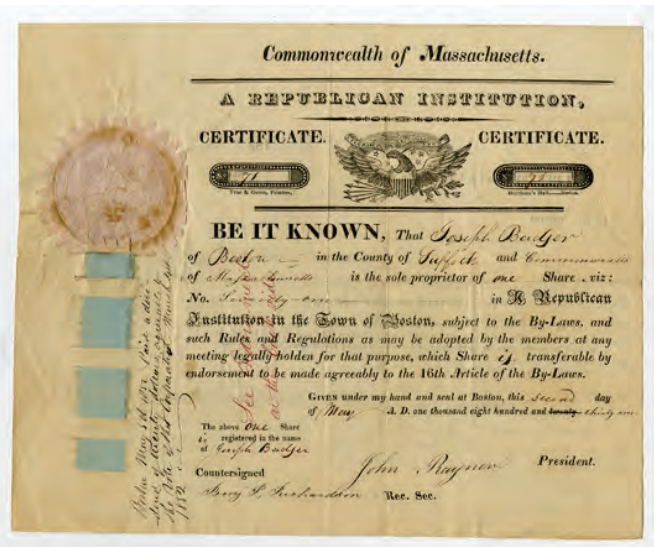 Commonwealth of Massachusetts.
A REPUBLICAN INSTITUTION,
CERTIFICATE.
CERTIFICATE.
71
True & Greene, Printers,
Merchants Hall, Boston.
BE IT KNOWN, That Joseph Badger
of Boston in the County of Suffolk and Commonwealth
of Massachusetts is the sole proprietor of one Share, viz:
No. Seventy-one in A Republican
Institution in the Town of Boston, subject to the By-Laws, and
such Rules and Regulations as may be adopted by the members at any
meeting legally holden for that purpose, which Share is transferable by
endorsement to be made agreeably to the 16th Article of the By-Laws.
GIVEN under my hand and seal at Boston, this second day
of May A. D. one thousand eight hundred and twenty thirty one
The above one Share
is registered in the name
of Joseph Badger
John Rayner President.
Countersigned
Richardson Rec. Sec.
See
on the
Boston May 3d 1832 Paid a divi-
dend of dollars agreeably to
the Vote of the
1832